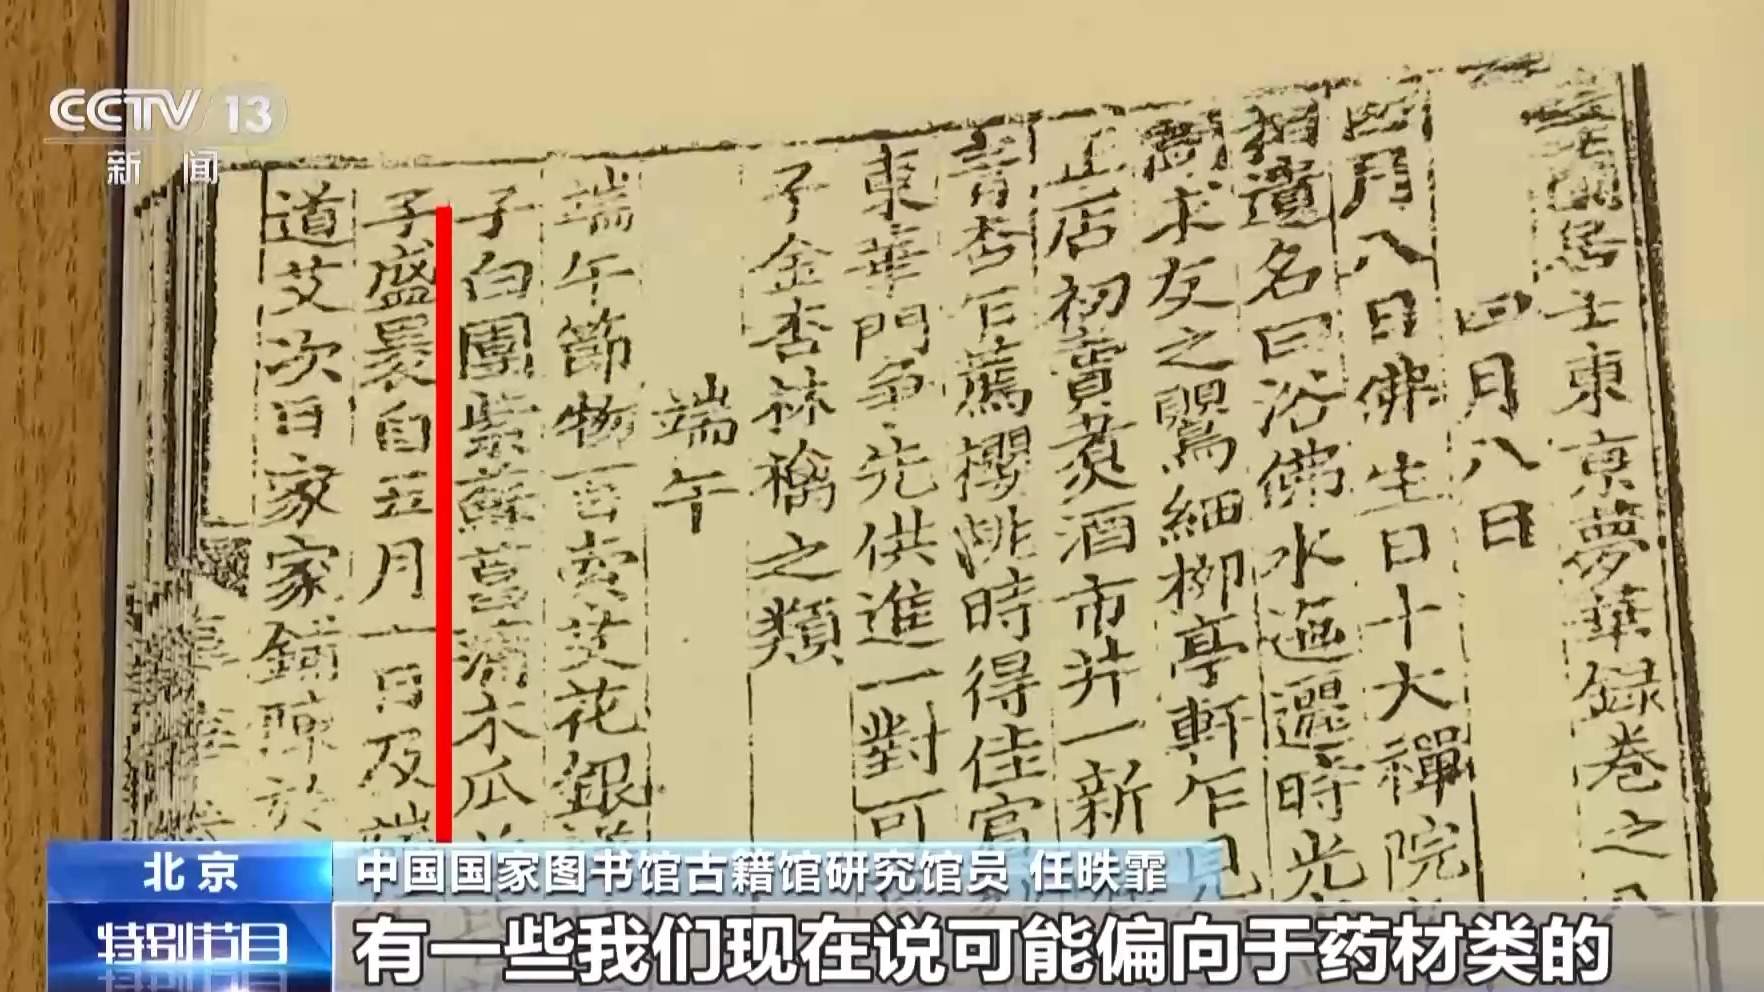 CCTV 13
新闻
蘭居士東京夢華録卷之
四月八日
四月八日佛生日十大禪院
相遺名曰浴佛水迤邐時光
樹求友之鸎細栁亭軒乍見
正店初賣煑酒市井一新
青杏乍薦櫻桃時得佳賓
東華門争先供進一對可
子金杏林檎之類
端午
端午節物百索艾花銀
子白團紫蘇菖蒲木瓜
子盛裹自五月一日及端
道艾次日家家鋪陳於
北京
中国国家图书馆古籍馆研究馆员 任昳霏
特别节目
有一些我们现在说可能偏向于药材类的